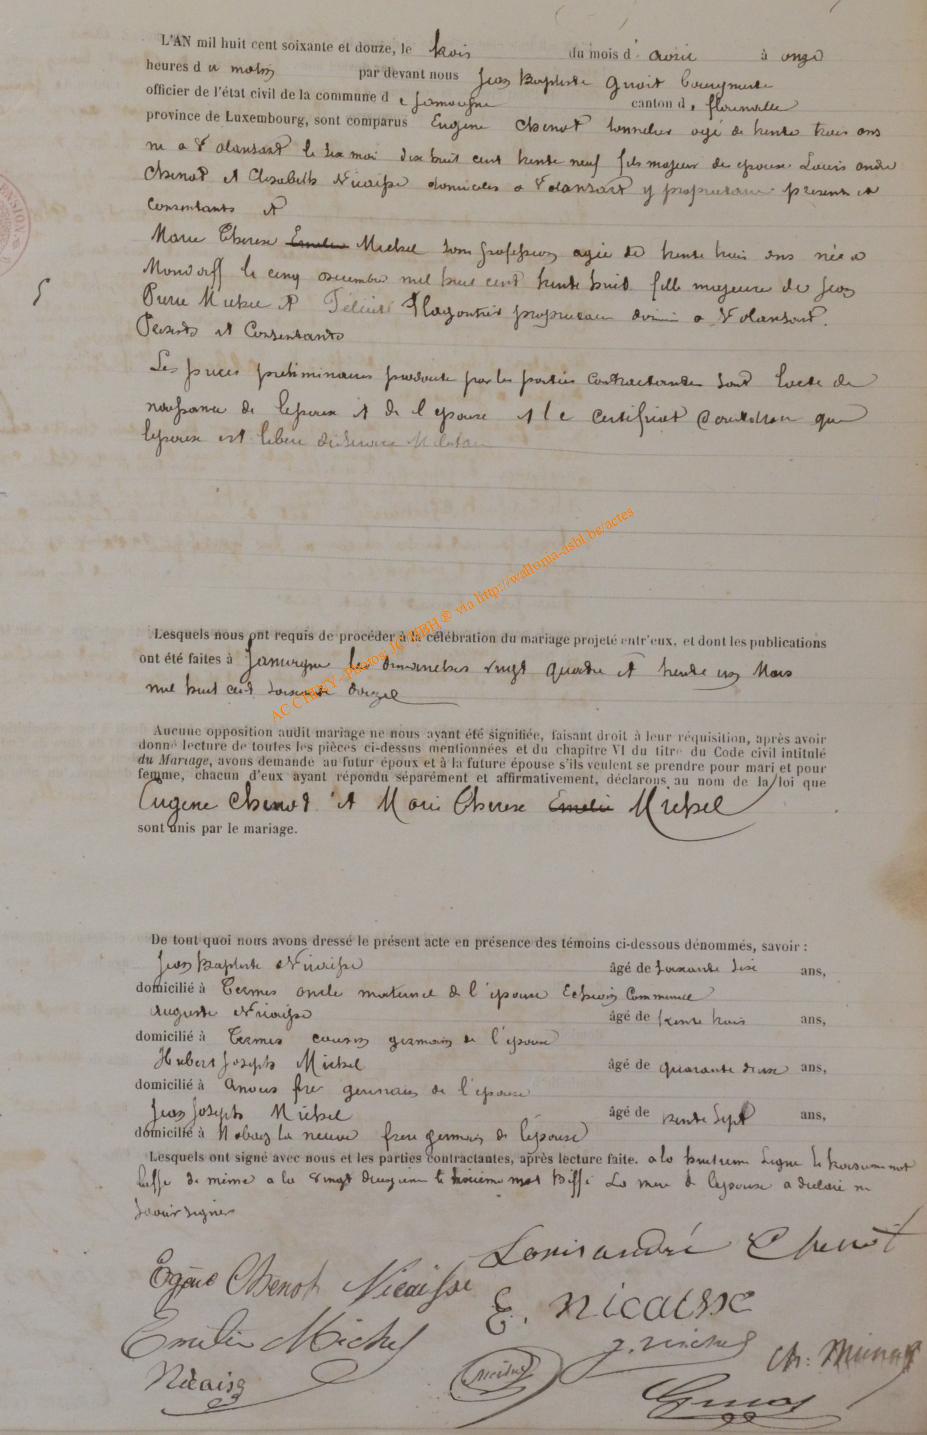 L'AN mil huit cent soixante et douze, le trois du mois d' avril à onze
heures du matin par devant nous Jean Baptiste Bourgmestre
officier de l'état civil de la commune de Jamoigne canton de florenville
province de Luxembourg, sont comparus Eugene Chenot tonnelier agé de trente trois ans
ne a Valansart le six mai dix huit cent trente neuf fils majeur des epoux Louis andre
Chenot et Elisabeth Nicaisse domicilies a Valansart y proprietaires presents et
Consentants et
Marie Therese Emelie Michel sans profession agée de trente trois ans née a
le cinq decembre mil huit cent trente huit fille majeure de Jean
Pierre Michel et proprietaires a Valansart.
Presents et Consentants
5
Les pieces preliminaires produites par les parties Contractantes sont l'acte de
naissance de l'epoux et de l epouse et le Certificat constatant que
l'epoux est libere du service Militaire
Lesquels nous ont requis de procéder à la célébration du mariage projeté entr'eux, et dont les publications
ont été faites à Jamoigne les dimanches vingt quatre et trente un Mars
mil huit cent soixante douze
AC CHINY - Photos JC MBH © via http://wallonia-asbl.be/actes
Aucune opposition audit mariage ne nous ayant été signifiée, faisant droit à leur réquisition, après avoir
donné lecture de toutes les pièces ci-dessus mentionnées et du chapitre VI du titre du Code civil intitulé
du Mariage, avons demandé au futur époux et à la future épouse s'ils veulent se prendre pour mari et pour
femme, chacun d'eux ayant répondu séparément et affirmativement, déclarons au nom de la loi que
Eugene Chenot et Marie Therese Emelie Michel
sont unis par le mariage.
De tout quoi nous avons dressé le présent acte en présence des témoins ci-dessous dénommés, savoir :
Jean Baptiste Nicaisse âgé de soixante six ans,
domicilié à Termes oncle maternel de l'epoux Echevin Communal
Auguste Nicaisse âgé de trente trois ans,
domicilié à Termes cousin germain de l'epoux
Hubert Joseph Michel âgé de quarante deux ans,
domicilié à frere germain de l'epouse
Jean Joseph Michel âgé de trente Sept ans,
domicilié à Habay la neuve frere germain de l'epouse
Lesquels ont signé avec nous et les parties contractantes, après lecture faite. a la huitieme Ligne le troisieme mot
biffé de meme a la vingt deuxieme le troisieme mot Biffé La mere de l'epouse a declaré ne
savoir signer
Louis andré Chenot
Egene Chenot Nicaisse
E. Nicaisse
Emelie Michel
J. Michel
Nicaise
Michel